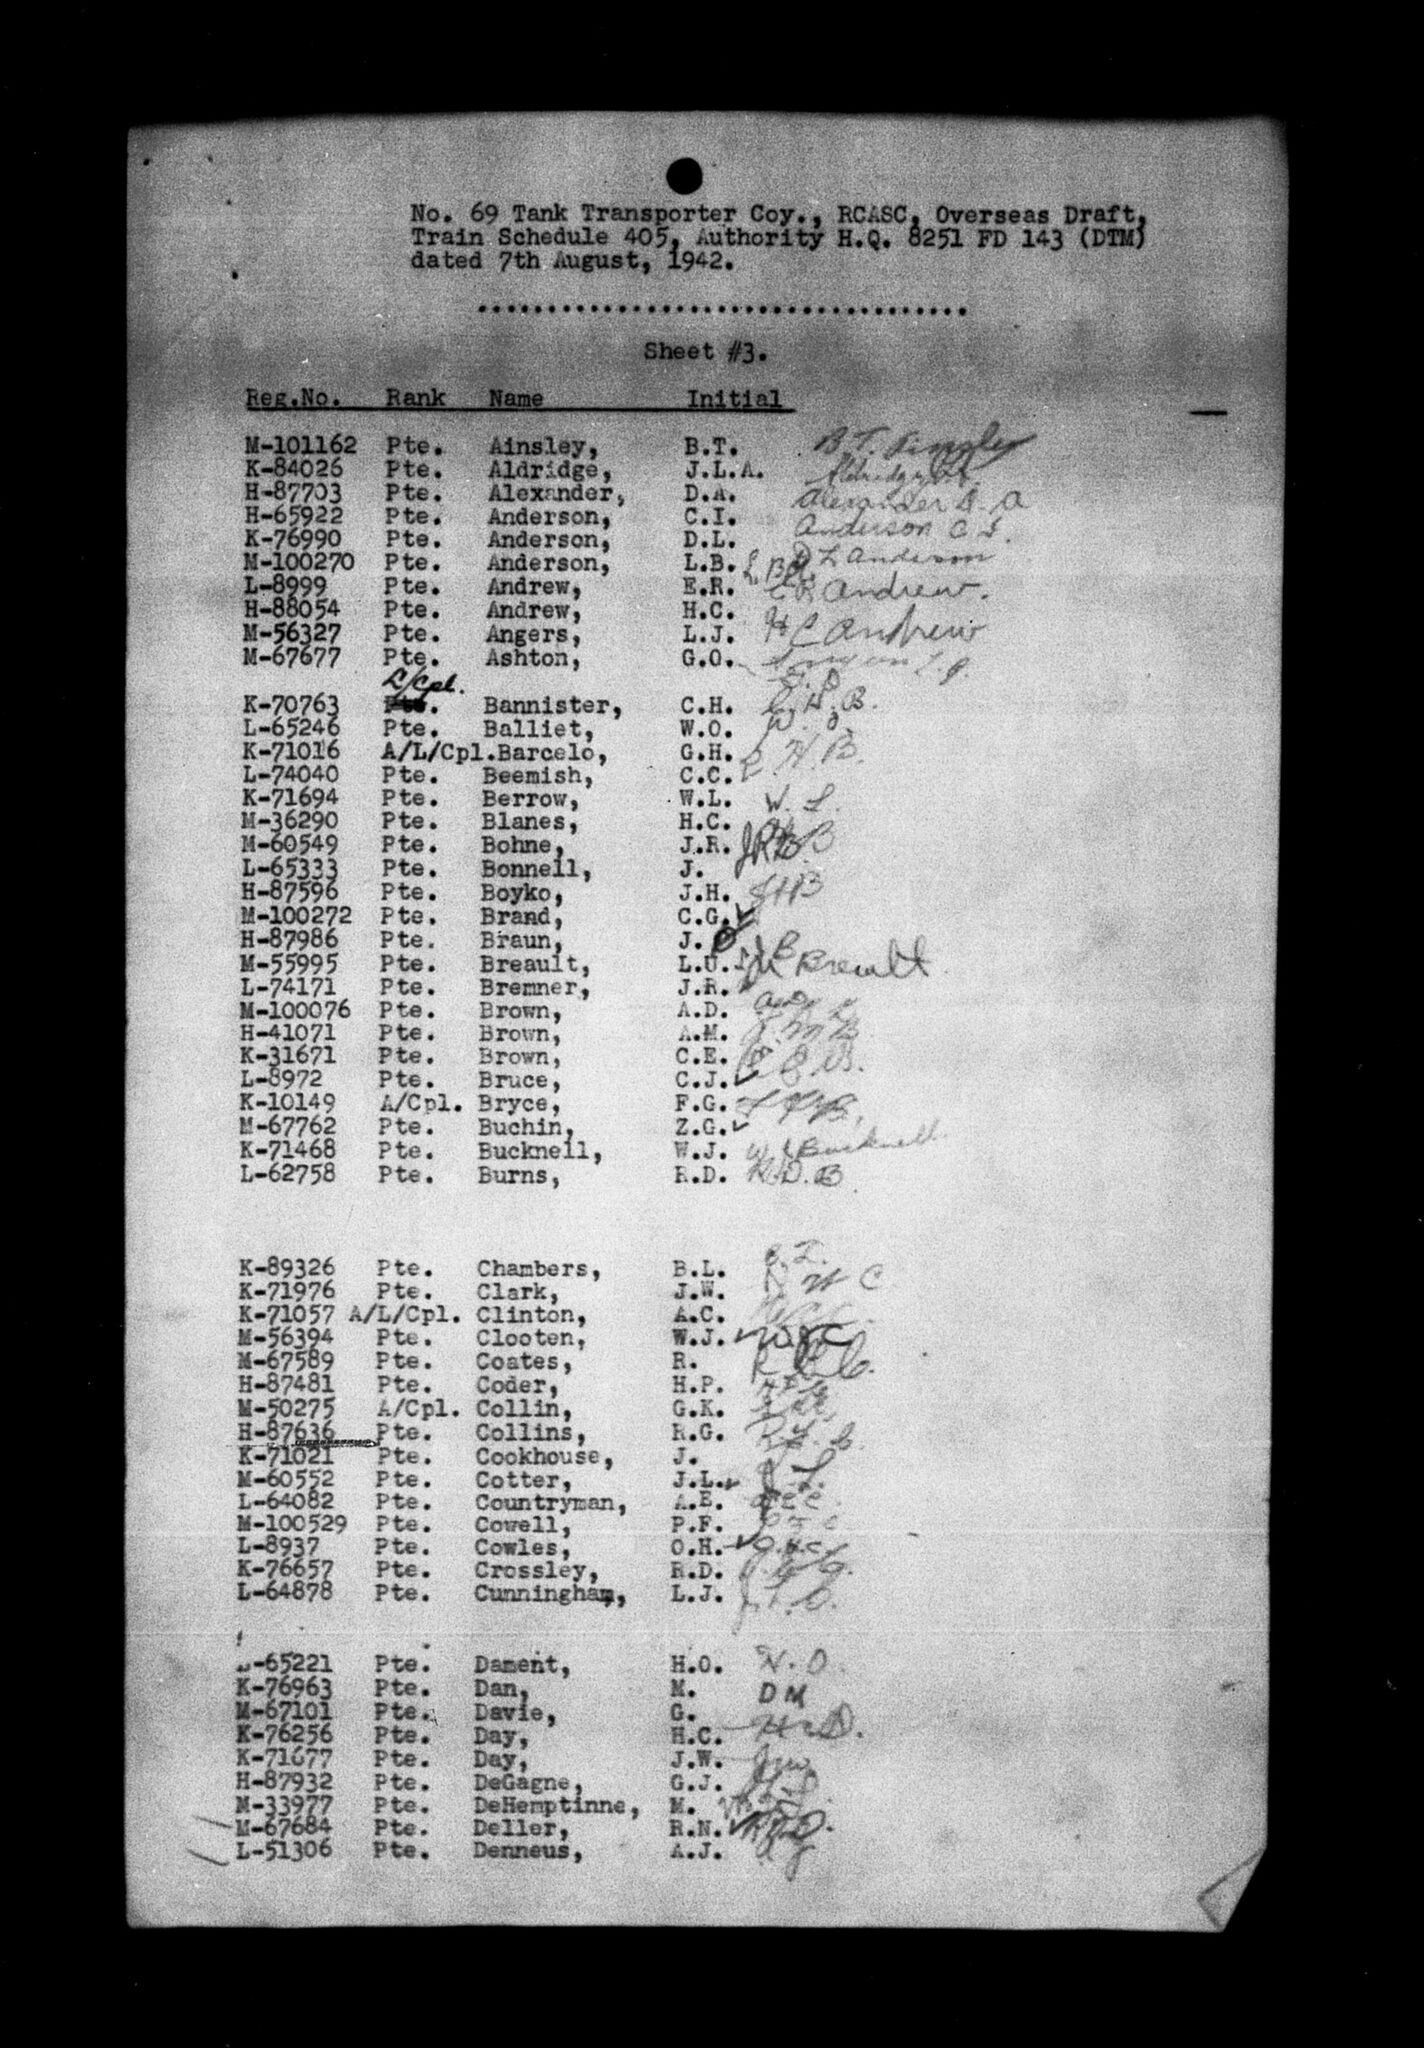 No. 69 Tank Transporter Coy., RCASC, Overseas Draft,
Train Schedule 405, Authority H.Q. 8251 FD 143 (DTM)
dated 7th August, 1942.
Sheet #3.
Reg.No. Rank Name Initial
M-101162 Pte. Ainsley, B.T. B.T.
K-84026 Pte. Aldridge, J.L.A.
H-87703 Pte. Alexander, D.A. Alexander D. A
H-65922 Pte. Anderson, C.I. Anderson C I.
K-76990 Pte. Anderson, D.L. D L Anderson
M-100270 Pte. Anderson, L.B. L B A.
L-8999 Pte. Andrew, E.R. E R Andrew.
H-88054 Pte. Andrew, H.C. H C Andrew
M-56327 Pte. Angers, L.J.
M-67677 Pte. Ashton, G.O.
L/Cpl.
K-70763 Pte. Bannister, C.H. C. H. B.
L-65246 Pte. Balliet, W.O. W. O.
K-71016 A/L/Cpl. Barcelo, G.H. G. H. B.
L-74040 Pte. Beemish, C.C.
K-71694 Pte. Berrow, W.L. W. L.
M-36290 Pte. Blanes, H.C.
M-60549 Pte. Bohne, J.R. JRB
L-65333 Pte. Bonnell, J.
H-87596 Pte. Boyko, J.H. JHB
M-100272 Pte. Brand, C.G. ✓
H-87986 Pte. Braun, J. JB
M-55995 Pte. Breault, L.U. LU Breault
L-74171 Pte. Bremner, J.R.
M-100076 Pte. Brown, A.D.
H-41071 Pte. Brown, A.M.
K-31671 Pte. Brown, C.E. C E B.
L-8972 Pte. Bruce, C.J. ✓
K-10149 A/Cpl. Bryce, F.G.
M-67762 Pte. Buchin, Z.G. ✓
K-71468 Pte. Bucknell, W.J. W J Bucknell
L-62758 Pte. Burns, R.D. R.D.B
K-89326 Pte. Chambers, B.L.
K-71976 Pte. Clark, J.W. J W C
K-71057 A/L/Cpl. Clinton, A.C.
M-56394 Pte. Clooten, W.J. ✓ WJC
M-67589 Pte. Coates, R.
H-87481 Pte. Coder, H.P.
M-50275 A/Cpl. Collin, G.K.
H-87636 Pte. Collins, R.G.
K-71021 Pte. Cookhouse, J.
M-60552 Pte. Cotter, J.L. ✓ J. L.
L-64082 Pte. Countryman, A.E. AEC
M-100529 Pte. Cowell, P.F. P F C
L-8937 Pte. Cowles, O.H. ✓ O.H.C
K-76657 Pte. Crossley, R.D.
L-64878 Pte. Cunningham, L.J.
L-65221 Pte. Dament, H.O. H. O.
K-76963 Pte. Dan, M. DM
M-67101 Pte. Davie, G.
K-76256 Pte. Day, H.C. H C D.
K-71677 Pte. Day, J.W. JW
H-87932 Pte. DeGagne, G.J.
M-33977 Pte. DeHemptinne, M.
M-67684 Pte. Deller, R.N. ✓ R.N.D.
L-51306 Pte. Denneus, A.J. A J